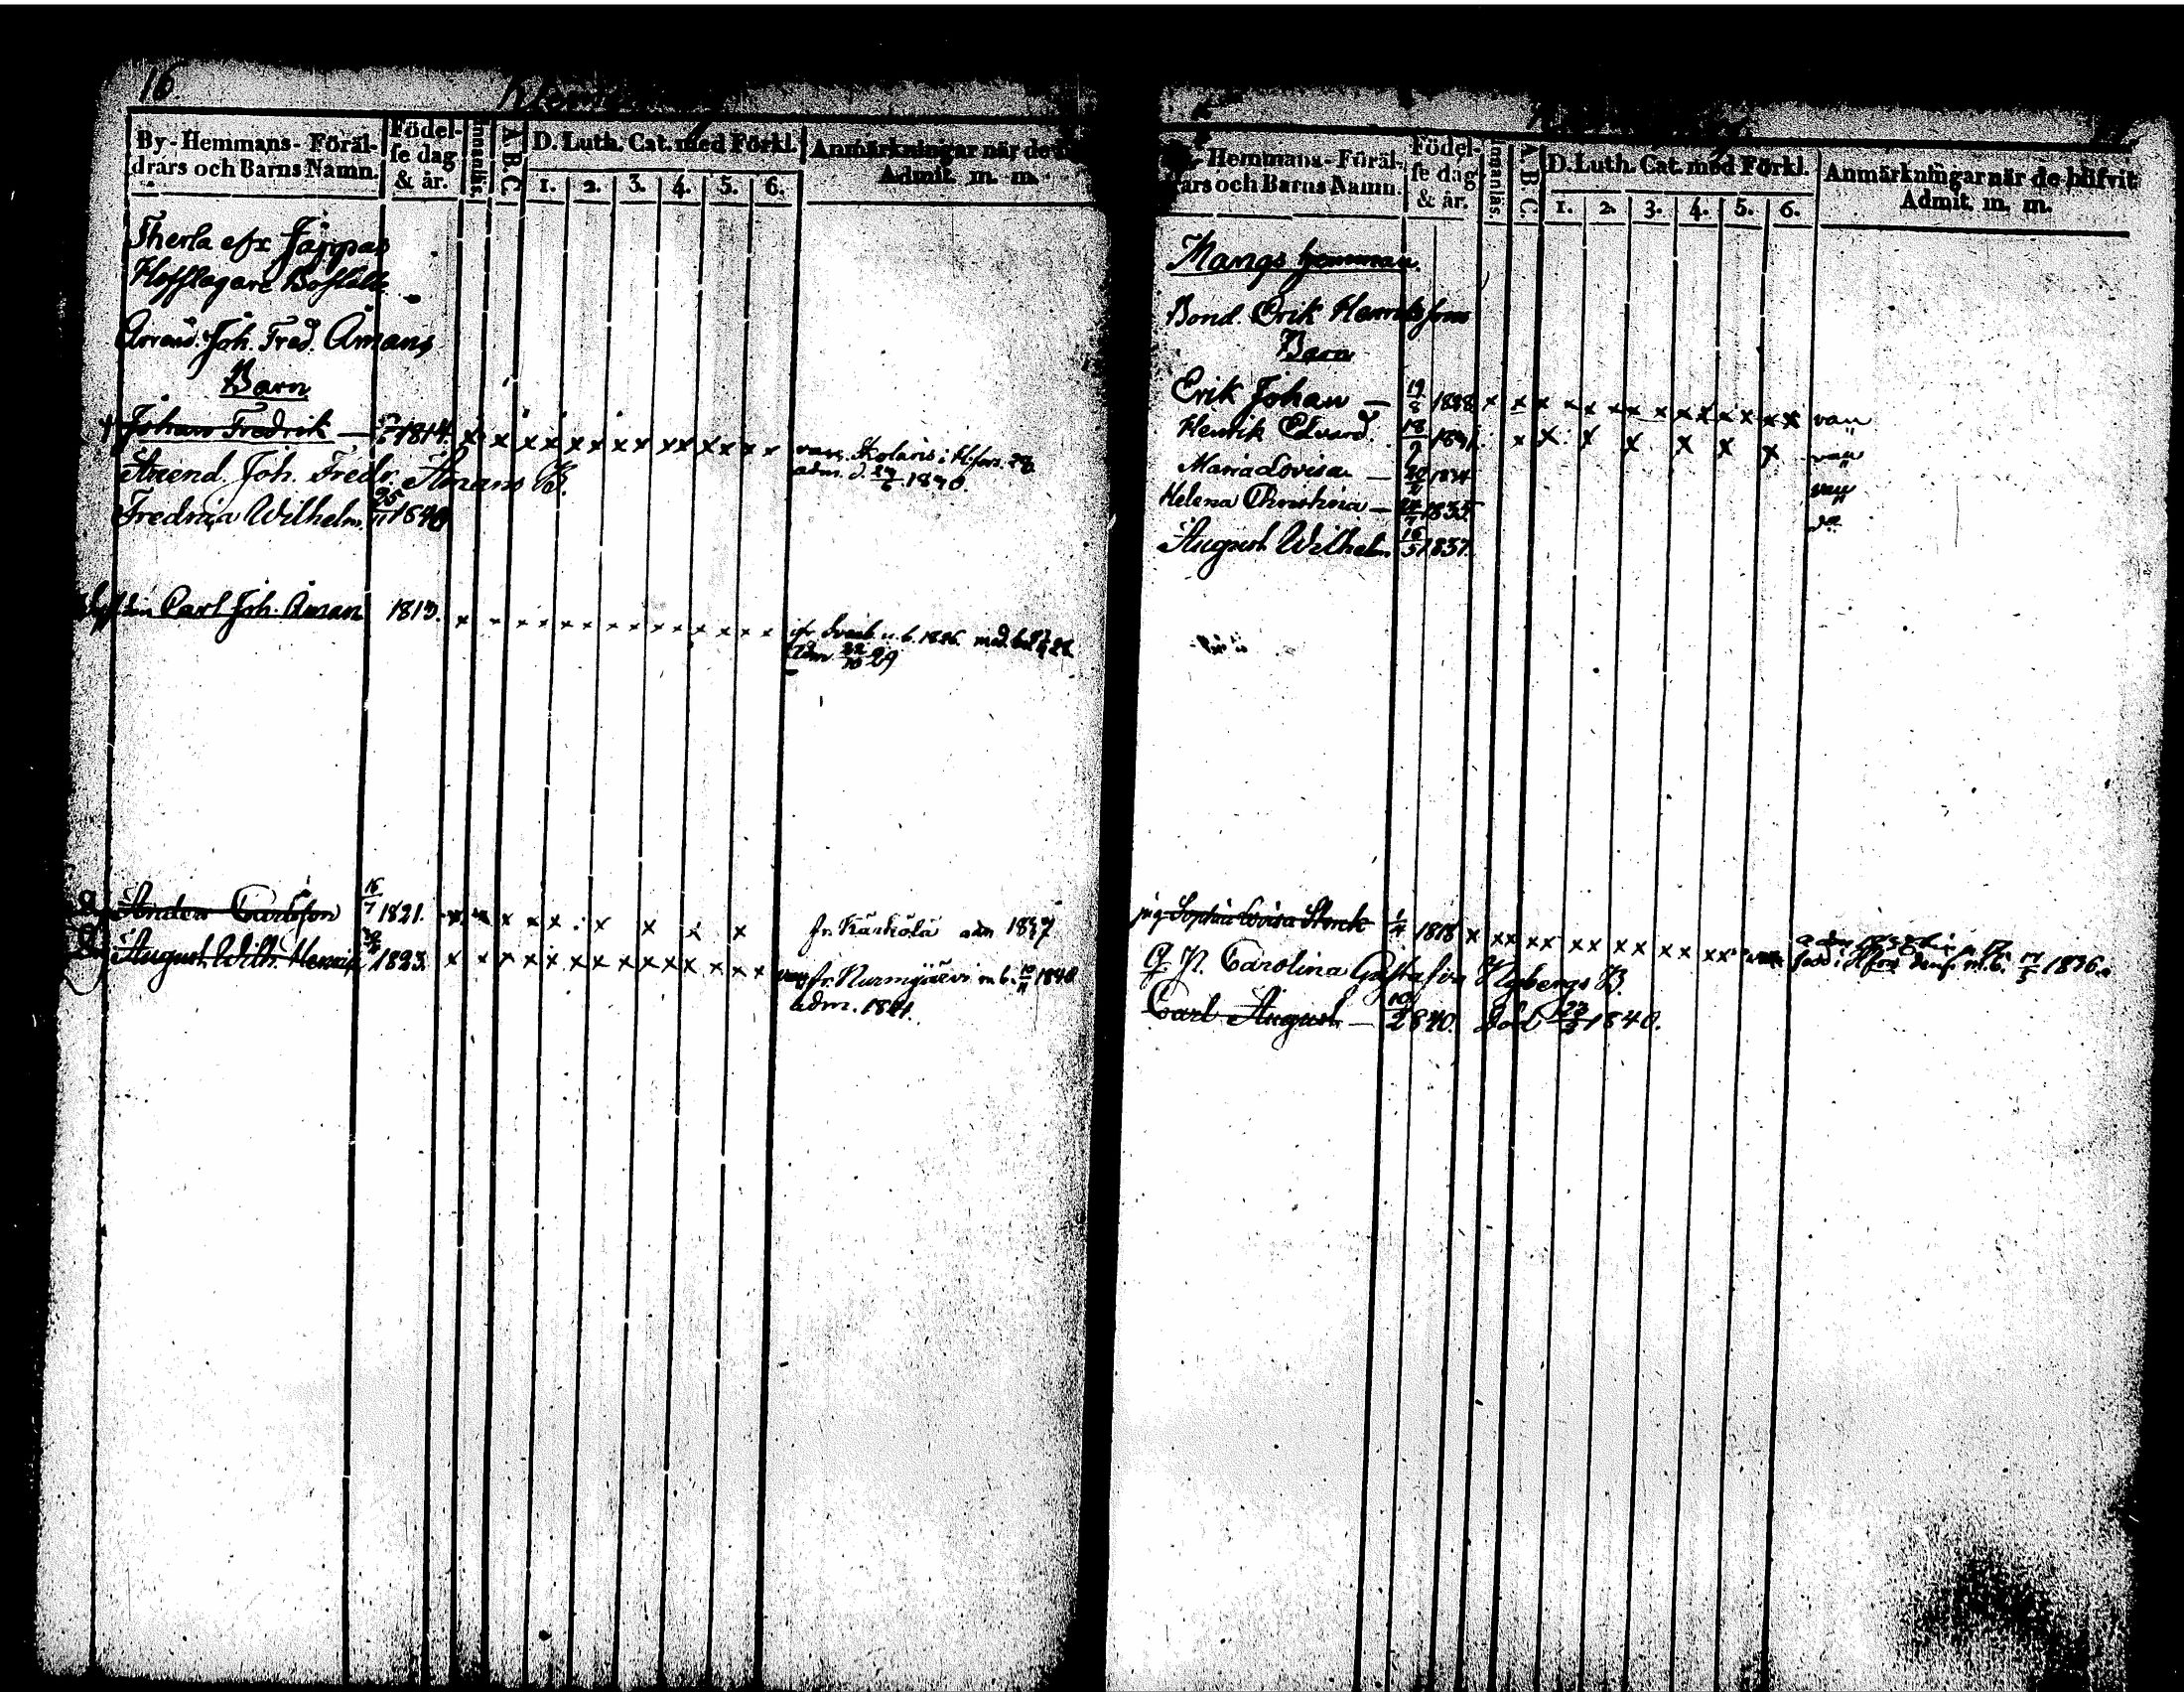 16.
By-Hemmans-Föräl-
drars och Barns Namn.
Födel-
se dag
& år.
Innanläs.
A B C
D. Luth. Cat. med Förkl.
1. 2. 3. 4. 5. 6.
Anmärkningar när de
Admit. m. m.
Therla Jäppas
Arrend. Joh. Fred. Åmans
Barn
Johan Fredrik — 1814. x x x x x x x x x x x x x
adm. d. 1840.
Arrend. Joh. Fredr. Åmans B.
Fredrica Wilhelm. 25/11 1840
Carl Joh. Åman 1813. x x x x x x x x x x x x x
Adm 22/10 29
Anders Carlsson 16/7 1821. x x x x x x x x x
fr. Kärkölä adm 1837
August Wilh. Henric 1823. x x x x x x x x x x x x x
fr. Nurmijärvi m. b. 10/11 1840
adm. 1841.
Hemmans-Föräl-
ars och Barns Namn.
Födel-
se dag
& år.
Innanläs.
A B C
D. Luth. Cat. med Förkl.
1. 2. 3. 4. 5. 6.
Anmärkningar när de blifvit
Admit. m. m.
Mangs hemman.
Bond. Erik Henrikssons
Barn
Erik Johan — 19/8 1828 x x x x x x x x x x x x x x
Henrik Edvard. 18/9 1831. x x x x x x x
Maria Lovisa — 1834
Helena Christina — 1835
August Wilhelm 16/5 1837.
pig. Sophia Lovisa Storck 1818 x x x x x x x x x x x x x x
1836.
Q. P. Carolina Gustafva Nybergs B.
Carl August — 10/2 840. död 23/2 1840.